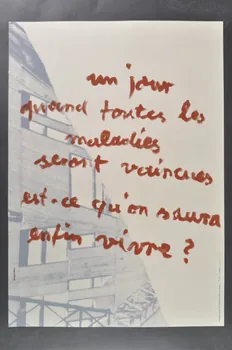 un jour
quand toutes les
maladies
seront vaincues
est-ce qu'on saura
enfin vivre ?